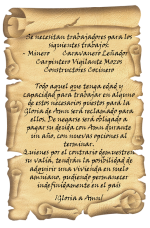 Se necesitan trabajadores para los
siguientes trabajos:
- Minero Caravanero Leñador
Carpintero Vigilante Mozos
Constructores Cocinero
Todo aquel que tenga edad y
capacidad para trabajar en alguno
de estos necesarios puestos para la
Gloria de Annu será reclamado para
ellos. De negarse será obligado a
pagar su deuda con Annu durante
un año, con nuevas opciones al
terminar.
Quienes por el contrario demuestren
su valía, tendrán la posibilidad de
adquirir una vivienda en suelo
anniano, pudiendo permanecer
indefinidamente en el país
¡Gloria a Annu!